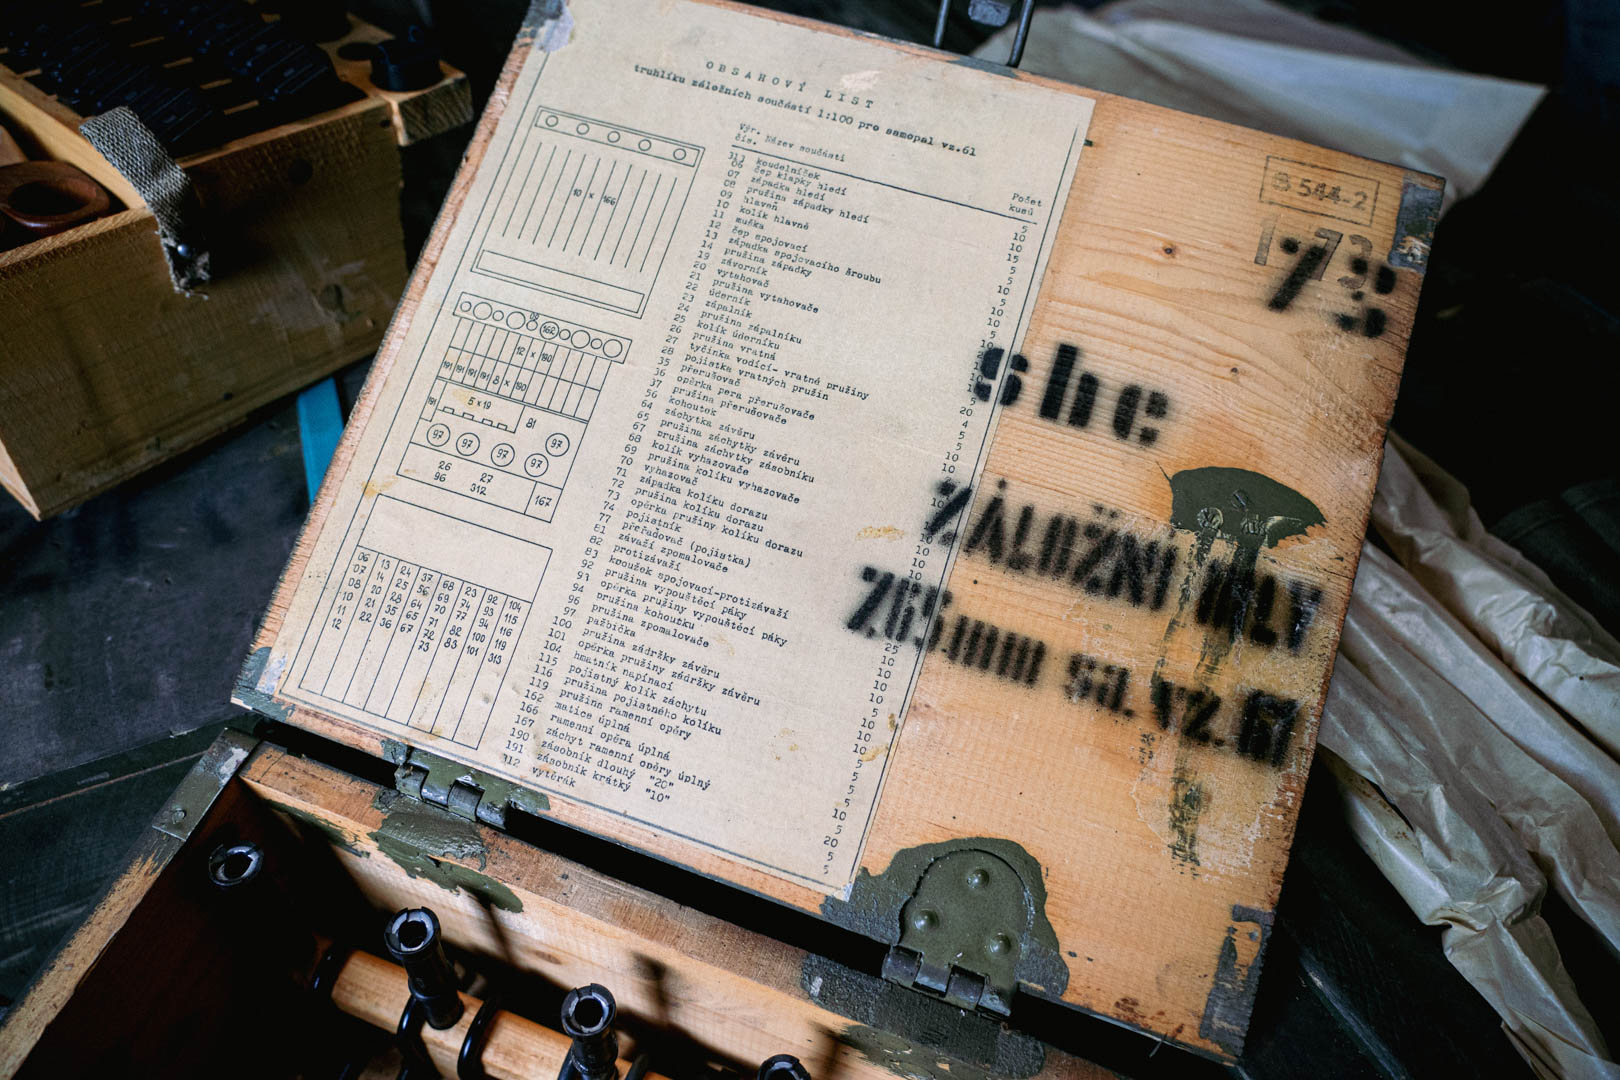 OBSAHOVÝ LIST
truhlíku záložních součástí 1:100 pro samopal vz.61
Výr. Název součásti Počet
čís. kusů
313 koudelníček 5
06 čep klapky hledí 10
07 západka hledí 10
08 pružina západky hledí 15
09 hlaveň 5
10 kolík hlavně
11 muška
12 čep spojovací
13 západka spojovacího šroubu
14 pružina západky
19 závorník
20 vytahovač
21 pružina vytahovače
22 úderník
23 zápalník
24 pružina zápalníku
25 kolík úderníku
26 pružina vratná
27 tyčinka vodící- vratné pružiny
28 pojistka vratných pružin
35 přerušovač
36 opěrka pera přerušovače
37 pružina přerušovače
56 kohoutek
64 záchytka závěru
65 pružina záchytky závěru
67 pružina záchytky zásobníku
68 kolík vyhazovače
69 pružina kolíku vyhazovače
70 vyhazovač
71 západka kolíku dorazu
72 pružina kolíku dorazu
73 opěrka pružiny kolíku dorazu
74 pojistník
77 přeřadovač (pojistka)
81 závaží zpomalovače
82 protizávaží
83 kroužek spojovací-protizávaží
92 pružina vypouštěcí páky
93 opěrka pružiny vypouštěcí páky
94 pružina kohoutku
96 pružina zpomalovače
97 pažbička
100 pružina zádržky závěru
101 opěrka pružiny zádržky závěru
104 hmatník napínací
115 pojistný kolík záchytu
116 pružina pojistného kolíku
119 pružina ramenní opěry
162 matice úplná
166 ramenní opěra úplná
167 záchyt ramenní opěry úplný
190 zásobník dlouhý "20" 20
191 zásobník krátký "10" 5
312 vytěrák 5
10 x 166
162
12 x 190
191 191 191 191 8 x 190
191 5 x 19 81
97 97 97 97 97
26 27
96 312 167
06 13 24 37 68 23 92 104
07 14 25 56 69 74 93 115
08 20 28 64 70 77 94 116
10 21 35 65 71 82 100 119
11 22 36 67 72 83 101 313
12 73
B 544-2
73
73
sbc
ZÁLOŽNÍ DÍLY
7,65mm sa. vz. 61